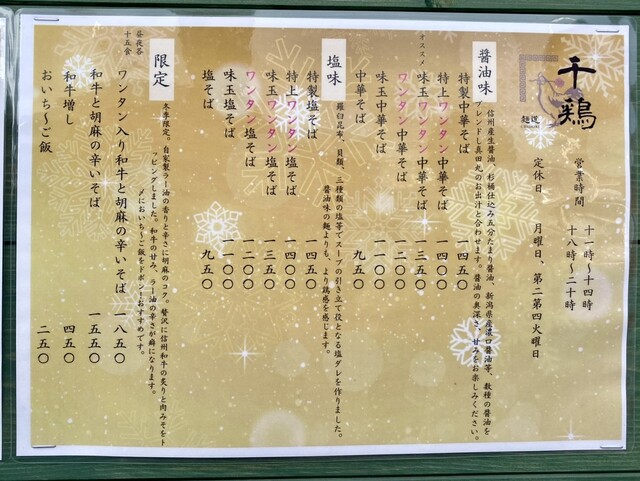 千鶏
麺道
CHIDORI
営業時間 十一時～十四時
十八時～二十時
定休日 月曜日、第二第四火曜日
醤油味
信州産生醤油、杉桶仕込み五分たまり醤油、新潟県産濃口醤油等、数種の醤油を
ブレンドし真田丸のお出汁と合わせます。醤油の奥深さ、甘みをお楽しみください。
特製中華そば 一四五〇
特上ワンタン中華そば 一四〇〇
オススメ
味玉ワンタン中華そば 一三五〇
ワンタン中華そば 一二〇〇
味玉中華そば 一一〇〇
中華そば 九五〇
塩味
羅臼昆布、貝類、三種類の塩等でスープの引き立て役となる塩ダレを作りました。
醤油味の麺よりも、より鶏感を感じます。
特製塩そば 一四五〇
特上ワンタン塩そば 一四〇〇
味玉ワンタン塩そば 一三五〇
ワンタン塩そば 一二〇〇
味玉塩そば 一一〇〇
塩そば 九五〇
限定
昼夜各
十五食
冬季限定。自家製ラー油の香りと辛さに胡麻のコク。贅沢に信州和牛の炙りと肉みそをト
ッピングしました。和牛の甘み、ラー油の辛さが癖になります。
〆においち～ご飯をドボン！とおすすめです。
ワンタン入り和牛と胡麻の辛いそば 一八五〇
和牛と胡麻の辛いそば 一五五〇
和牛増し 四五〇
おいち～ご飯 二五〇